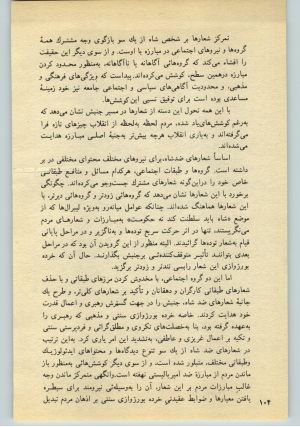 تمرکز شعارها بر شخص شاه از یک سو بازگوی وجه مشترک همهٔ
گروه‌ها و نیروهای اجتماعی در مبارزه با اوست. و از سوی دیگر این حقیقت
را افشاء می‌کند که گروه‌هائی آگاهانه یا ناآگاهانه، به‌منظور محدود کردن
مبارزه درهمین سطح، کوشش می‌کرده‌اند. پیداست که ویژگی‌های فرهنگی و
مذهبی، و محدودیت آگاهی‌های سیاسی و اجتماعی جامعه نیز خود زمینهٔ
مساعدی بوده است برای توفیق نسبی این کوشش‌ها.
با این همه تحول این دسته از شعارها در مسیر جنبش نشان می‌دهد که
به‌رغم کوشش‌های یاد شده، مردم لحظه به‌لحظه از انقلاب چیزهای تازه فرا
می‌گرفته‌اند و به‌یاری انقلاب هرچه بیش‌تر به‌جنبهٔ اصلی مبارزه هدایت
می‌شده‌اند.
اساساً شعارهای ضدشاه، برای نیروهای مختلف محتوای مختلفی در بر
داشته است. گروه‌ها و طبقات اجتماعی، هرکدام مسائل و منافع طبقاتی
خاص خود را دراین‌گونه شعارهای مشترک جست‌وجو می‌کرده‌اند. چگونگی
برخورد با این شعارها نشان می‌دهد که گروه‌هائی زودتر و گروه‌هائی دیرتر، با
این شعارها هماهنگ شده‌اند. چنانکه عوامل میانه‌رو به‌ویژه لیبرال‌ها که از
موضع «شاه باید سلطنت کند نه حکومت» به‌مبارزات و شعارهای مردم
می‌نگریستند، تنها در اثر حرکت سریع توده‌ها و به‌ناگزیر و در مراحل پایانی
قیام به‌شعار توده‌ها گرائیدند. البته منظور از این گرویدن آن بود که در مراحل
بعدی بتوانند تأثیر متوقف‌کننده‌ئی برجنبش بگذارند. حال آن که خرده
بورژوازی این شعار را‌بسی تندتر و زودتر برگزید.
اما این دو گروه اجتماعی، با مخدوش کردن مرزهای طبقاتی و با حذف
شعارهای طبقاتی کارگران و دهقانان و تأکید بر شعارهای کلی‌تر، و طرح یک
جانبهٔ شعارهای ضد شاه، جنبش را در جهت گسترش رهبری و اعمال قدرت
خود هدایت کردند. خاصه خرده بورژوازی سنتی و مذهبی که رهبری را
به‌عهده گرفته بود، بنا به‌خصلت‌های تک‌روی و مطلق‌گرائی و فردپرستی سنتی
و تکیه بر اعمال غریزی و عاطفی، به‌تشدید این امر یاری کرد. به‌این ترتیب
در شعارهای ضد شاه از یک سو تنوع دیدگاه‌ها و محتواهای ایدئولوژیک
وطبقاتی مختلف، متبلور شده است. و از سوی دیگر کوشش‌هائی به‌منظور باز
ماندن مردم از مبارزهٔ ضد امپریالیستی نهفته است. وانگهی متمرکز ماندن وجه
غالب مبارزات مردم بر این شعار، آن را به‌وسیله‌ئی نیرومند برای سیطره
یافتن معیارها و ضوابط عقیدتی خرده بورژوازی سنتی بر اذهان مردم تبدیل
۱۰۴